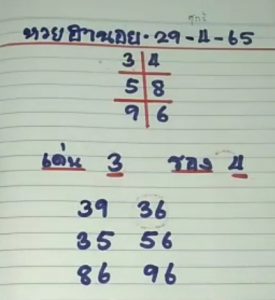 ศุกร์
หวยฮานอย・29-4-65
3 4
5 8
9 6
เด่น 3 รอง 4
39 36
35 56
86 96